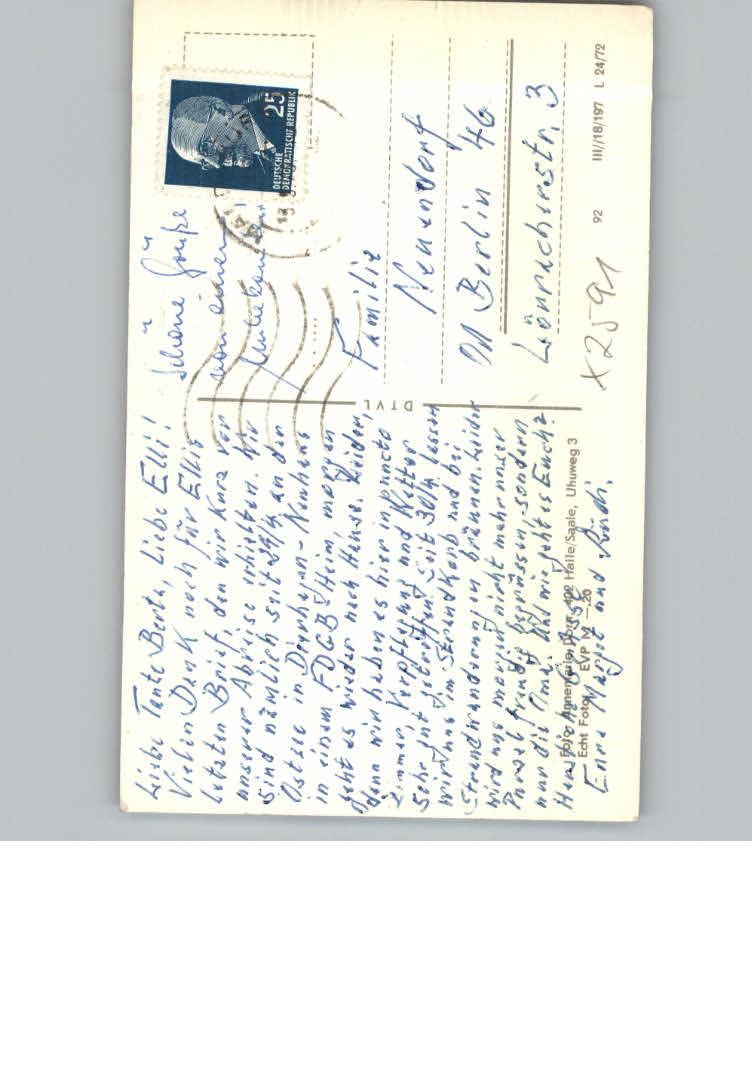 Liebe Tante Berta, Liebe Elli!
Vielen Dank noch für Ellis
letzten Brief, den wir kurz vor
unserer Abreise erhielten. Wir
sind nämlich seit 29/4 an der
Ostsee in
in einem FDGB-Heim, morgen
geht es wieder nach Hause. Leider,
denn wir haben es hier in puncto
Zimmer, Verpflegung und Wetter
sehr gut getroffen. Seit 30/4 lassen
wir uns im Strandkorb und bei
Strandwanderungen bräunen. Leider
wird uns morgen nicht mehr unser
freudig begrüssen, sondern
nur die Oma. Und wie geht es Euch?
Herzliche Grüsse
Eure Margot und Rudi.
Schöne Grüße
von einem
Unbekannten
DEUTSCHE
DEMOKRATISCHE REPUBLIK
25
Familie
Neuendorf
Berlin 46
3
X2591
DTVL
Foto: Annemarie Dörr, 402 Halle/Saale, Uhuweg 3
Echt Foto EVP M -,20
92 III/18/197 L 24/72